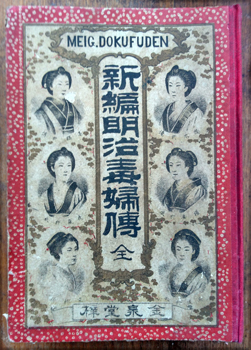 MEIG.DOKUFUDEN
新編明治毒婦傳
全
梓堂泉金